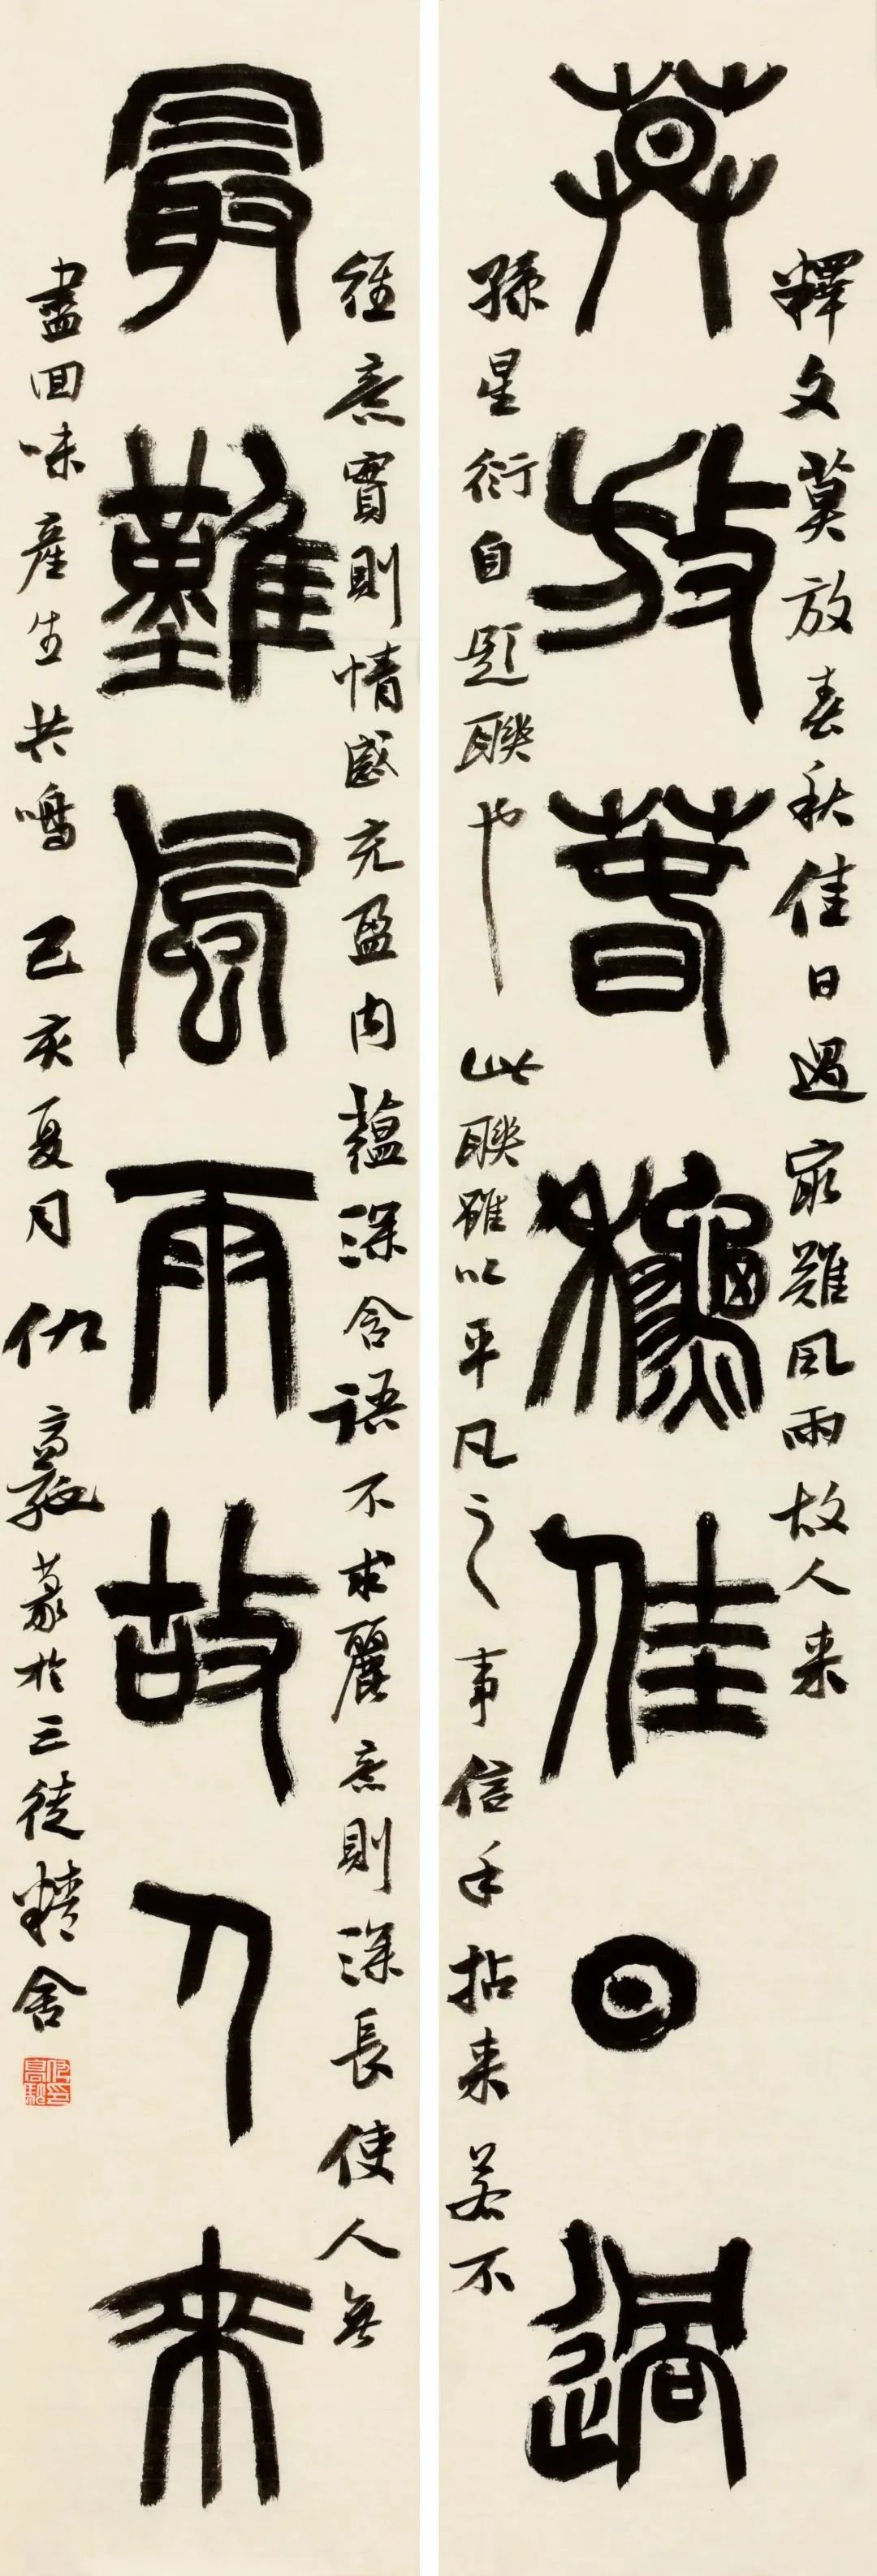 釋文莫放春秋佳日過最難風雨故人来
莫放萅龝佳日過
孫星衍自題聯也 此聯雖以平凡之事信手拈来若不
經意實則情感充盈内蕴深含語不求麗意則深長使人無
最難風雨故人来
盡回味産生共鳴 己亥夏月 仇高馳篆於三徒精舍